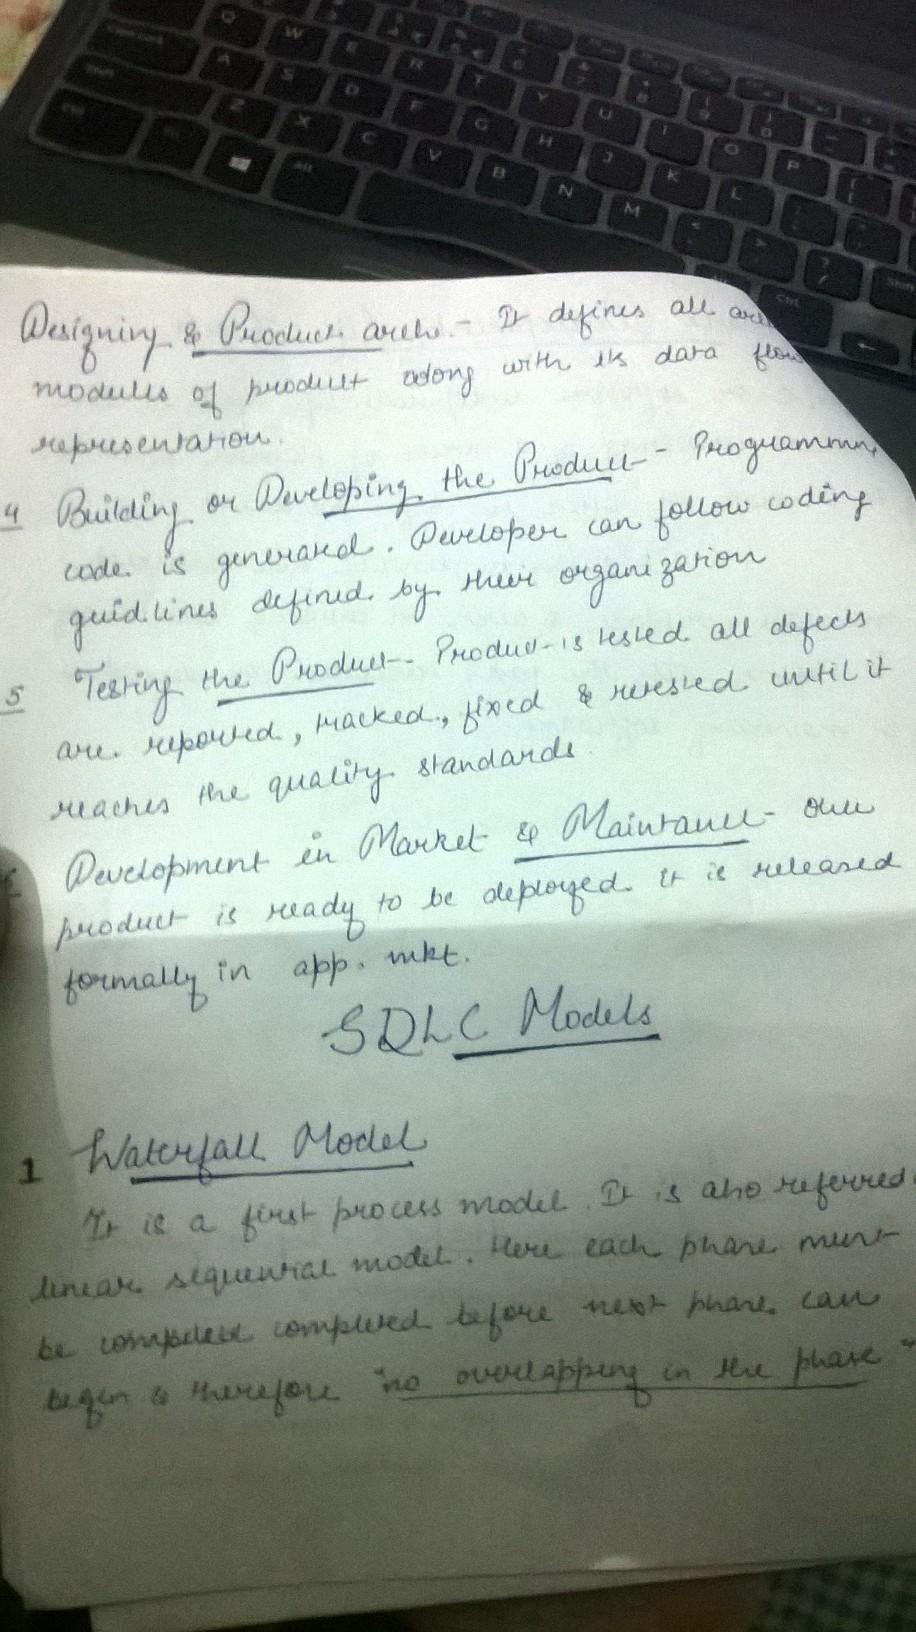 Designing & Product arch. - It defines all
modules of product along with its data flow
representation.
4 Building or Developing the Product - Programmin
code is generated. Developer can follow coding
guidlines defined by their organization
5 Testing the Product - Product is tested all defects
are reported, tracked, fixed & retested until it
reaches the quality standards.
Development in Market & Maintance - once
product is ready to be deployed it is released
formally in app. mkt.
SDLC Models
1 Waterfall Model
It is a first process model. It is also referred
linear sequential model. Here each phase must
be completed before next phase can
begin & therefore "no overlapping in the phase"